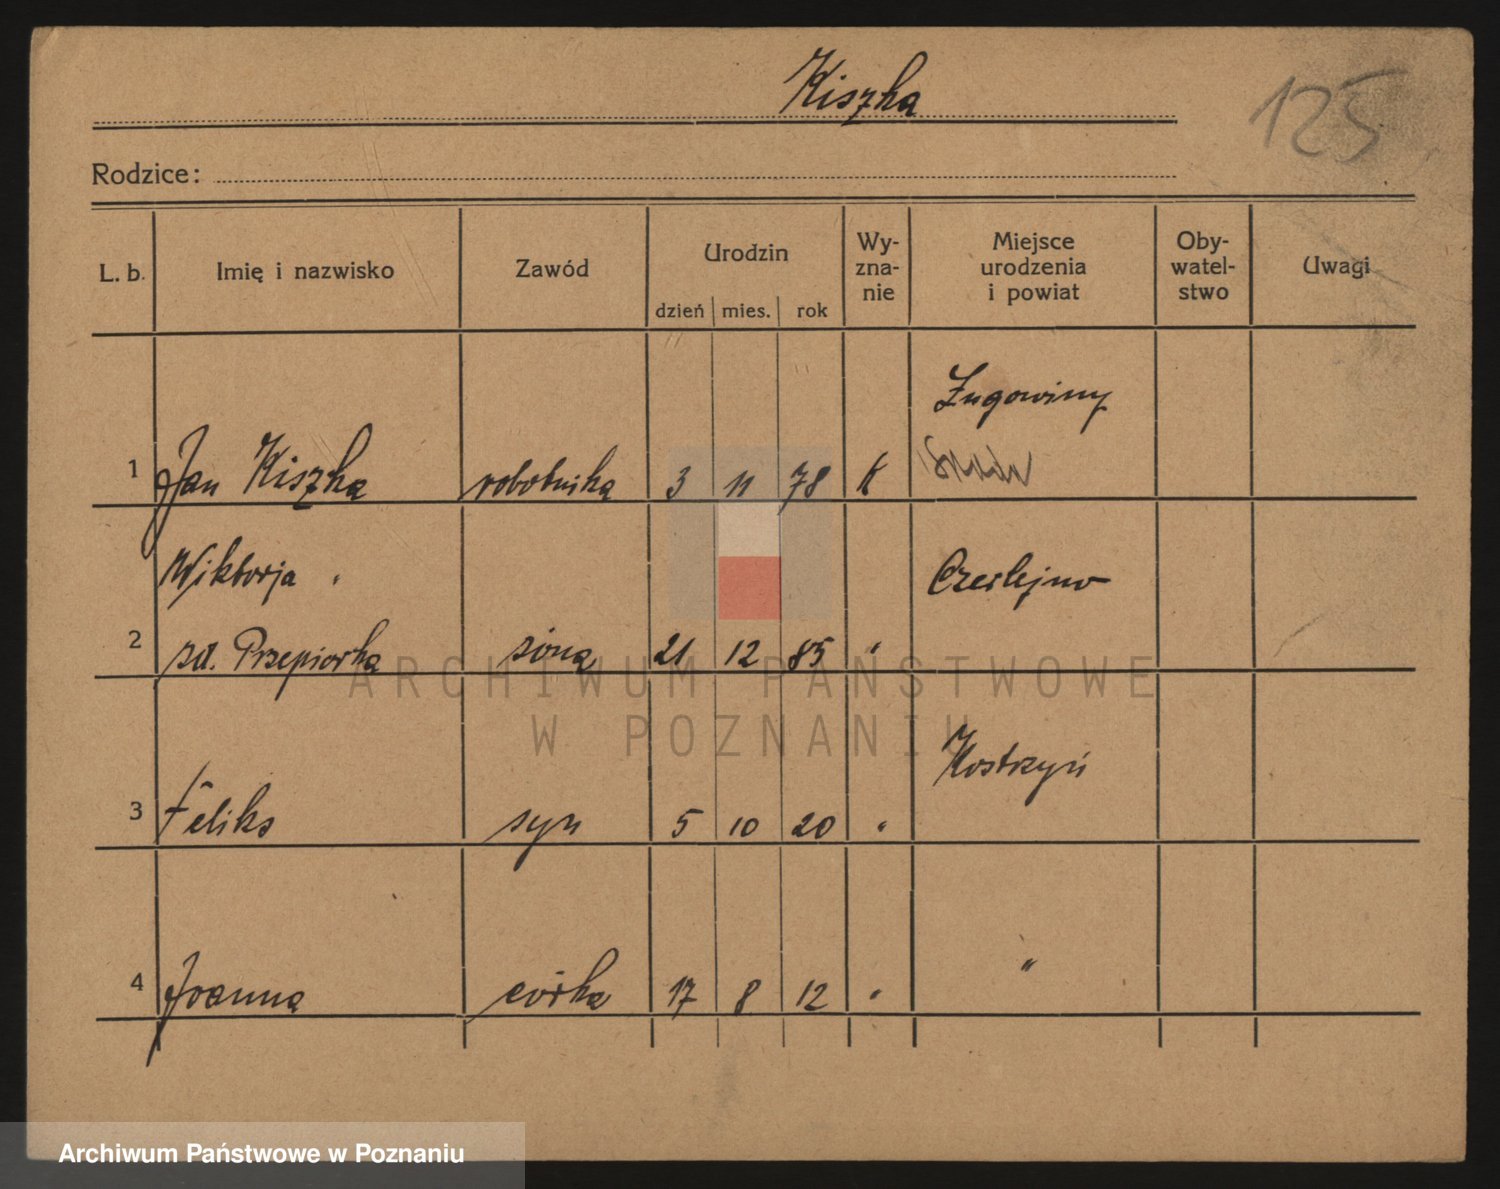 Kiszka
125
Rodzice:
L. b. Imię i nazwisko Zawód Urodzin dzień mies. rok Wy-zna-nie Miejsce urodzenia i powiat Oby-watel-stwo Uwagi
Żugowiny
1 Jan Kiszka robotnika 3 11 78 K
Wiktorja " Czerlejno
2 zd. Przepiorka żona 21 12 85 "
Kostrzyń
3 Feliks syn 5 10 20 "
"
4 Joanna córka 17 8 12 "
ARCHIWUM PAŃSTWOWE
W POZNANIU
Archiwum Państwowe w Poznaniu